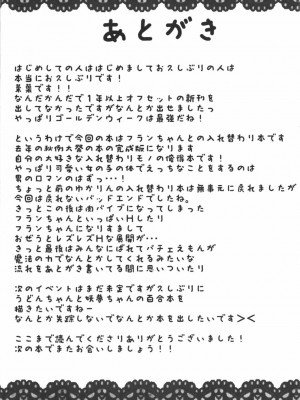 あとがき
はじめしての人ははじめましておひさしぶりの人は
本当におひさしぶりです!
なんだかんだで1年以上オフセットの新刊を
出してなかったですがなんとか出せましたっ
やっぱりゴールデンウィークは最強だね!
というわけで今回の本はフランちゃんとの入れ替わり本です
去年の秋例大祭の本の完成版になります
自分の大好きな入れ替わりモノの後悔本です!
やっぱり可愛い女の子の体でえっちなことをするのは
男のロマンのはずっ・・・!
ちょっと前のゆかりんの入れ替わり本は無事元に戻れましたが
今回は戻れないバッドエンドでしたね。
きっとこの後は肉バイブになってしまった
フランちゃんといっぱいHしたり
フランになりすまして
おぜうとレズレズHな展開が・・・
きっと最後はみんなにばれてパチェえもんが
魔法の力でなんとかしてくれるみたいな
流れをあとがき書いてる間に思いついたり
次のイベントはまだ未定ですがひさしぶりに
うどんちゃんと妖夢ちゃんの百合本を
描きたいですねー
なんとか失踪しないでなんとか本を出したいです><
ここまで読んでくださりありがとうございました!
次の本でまたお会いしましょう!!